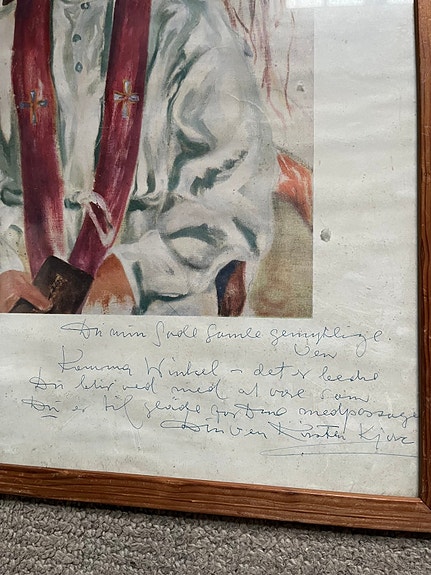 Du min Gode Gamle gemytlige
Ven
Winkel - det er bedre
Du blir ved med at være som
Du er til glæde for Dine medpassage
Din ven Kirsten Kjær